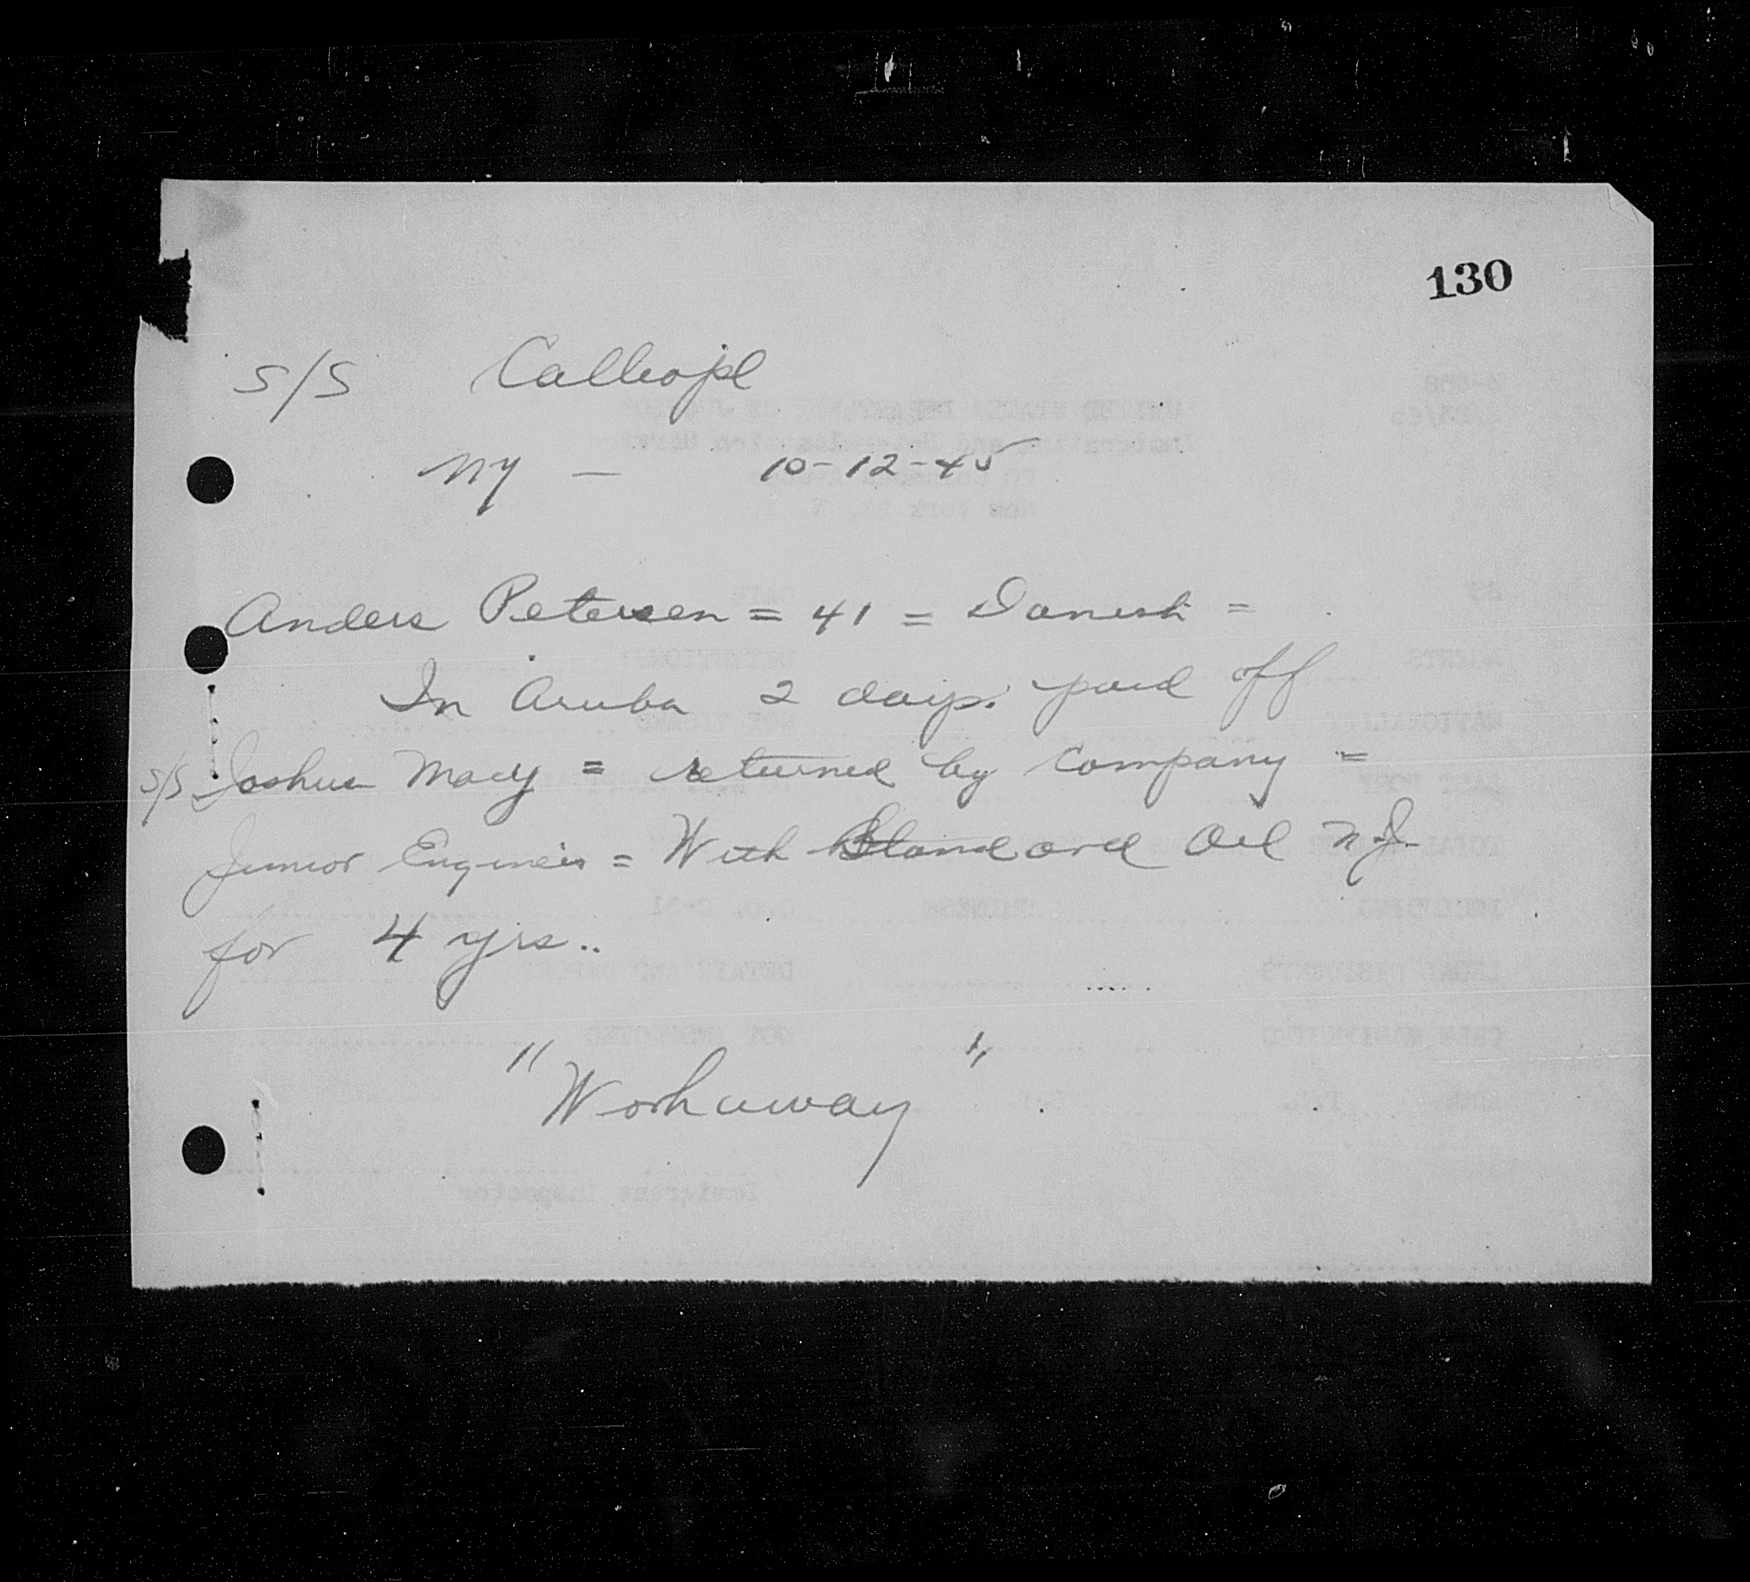 130
S/S Calliope
NY — 10-12-45
Anders Petersen = 41 = Danish =
In Aruba 2 days. paid off
S/S Joshua Macy = returned by Company =
Junior Engineer = With Standard Oil N.J.
for 4 yrs..
"Workaway"
Immigrant Inspector